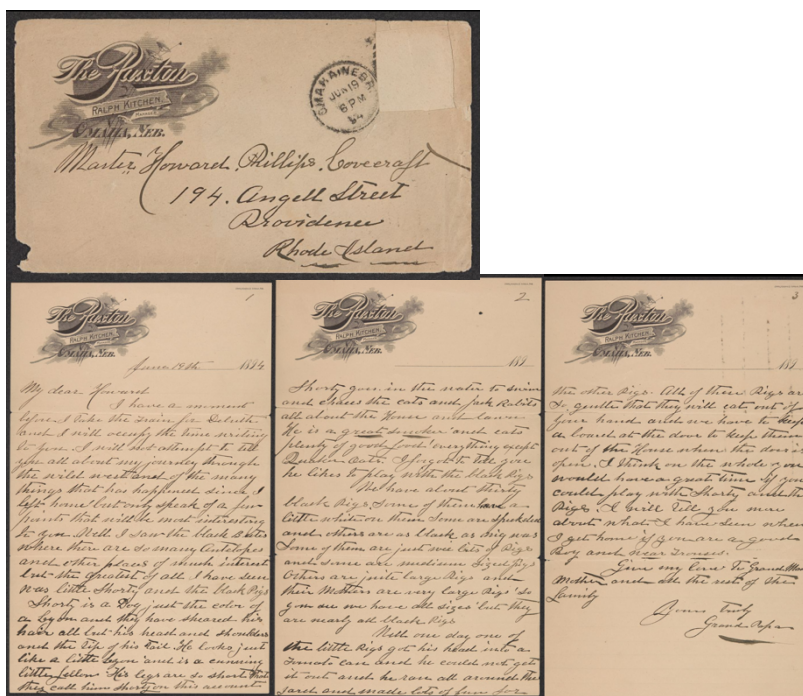 The Paxton
RALPH KITCHEN
OMAHA, NEB.
OMAHA, NEBR.
JUN 19
6 PM
94
Master Howard Phillips Lovecraft
194. Angell Street
Providence
Rhode Island
1
The Paxton
RALPH KITCHEN
OMAHA, NEB.
June 19th 1894
My dear Howard
I have a moment
before I take the train for Duluth
and I will occupy the time writing
to you. I will not attempt to tell
you all about my journey through
the wild west and of the many
things that has happened since I
left home but only speak of a few
points that will be most interesting
to you. Well I saw the black
where there are so many Antelopes
and other places of much interest
but the greatest of all I have seen
was little Shorty and the black Pigs
Shorty is a Dog just the color of
a Lyon and they have sheared his
hair all but his head and shoulders
and the tip of his tail. He looks just
like a little Lyon and is a cunning
little fellow His legs are so short that
they call him Shorty on this account
2
The Paxton
RALPH KITCHEN
OMAHA, NEB.
189
Shorty goes in the water to swim
and chases the cats and Jack Rabits
all about the House and lawn
He is a great smoker and eats
plenty of good food everything except
Quaker Oats. I forgot to tell you
he likes to play with the black Pigs
We have about thirty
black Pigs, Some of them have a
little white on them Some are speckled
and others are as black as any was
Some of them are just wee lots of Pigs
and some are medium sized Pigs
Others are quite large Pigs and
their Mothers are very large Pigs so
you see we have all sizes but they
are nearly all black Pigs
Well one day one of
the little Pigs got his head into a
Tomato can and he could not get
it out and he ran all around the
yard and made lots of fun for
3
The Paxton
RALPH KITCHEN
OMAHA, NEB.
189
the other Pigs. All of these Pigs are
so gentle that they will eat out of
your hand and we have to keep
a board at the door to keep them
out of the House when the door is
open. I think on the whole you
would have a great time if you
could play with Shorty and the
Pigs. I will tell you more
about what I have seen when
I get home if you are a good
Boy and
Give my love to Grand Ma
Mother and all the rest of the
family
Yours truly
Grand Papa